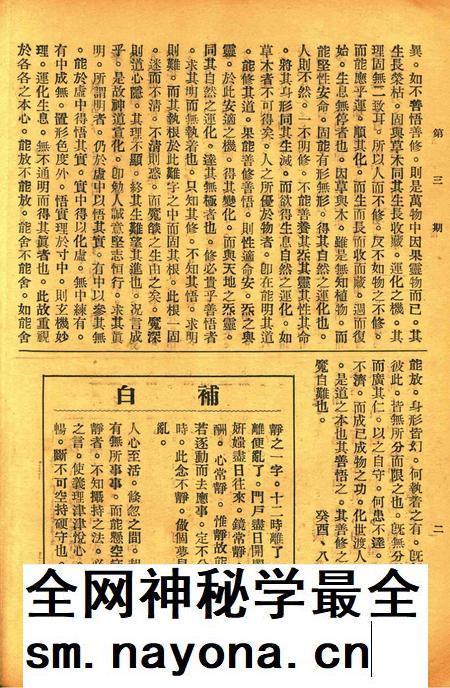 第三期
二
異。如不善悟善修。則是萬物中因果靈物而已。其
生長榮枯。固與草木同其生長收藏。運化之機。其
理固無二致耳。所以人而不修。反不如物之不修。
而能應乎運。順其化。而生而長而收而藏。週而復
始。生息無停者也。因草與木。雖是無知植物。而
能堅性安命。固能有形無形。得其自然之運化也。
人則不然。一不明修。不能善養其炁其靈其性其命
。將其身形同其生滅。而欲得生自然之運化。如
草木者不可得矣。人之所優於物者。卽在能明其道
。能修其道。果能善修善悟。則性適命安。炁之與
靈。於此安適之機。得其變化。而與天地之炁靈。
同其自然之運化。達其無極者也。修必貴乎善悟者
。求其明而無執着也。只知其修。不知其悟。求明
則難。而其執根於此難字之中而固其根。此根一固
。迷而不清。不清則惑。而魔燄之生由之矣。魔深
則道心離。其理不顯。終其生難望其進也。況言成
乎。是故神道宣化。卽勉人誠意堅志恒行。求其眞
明。所謂明者。仍於虛中以悟其實。有中以參其無
。能於虛中得悟其實。實中得以化虛。無中練有。
有中成無。置形色度外。悟實理於寸中。則玄機妙
理。運化生息。無不通明而得其眞者也。此故重視
於各各之本心。能放不能放。能舍不能舍。如能舍
能放。身形皆幻。何執着之有。旣
彼此。皆無所分而限之也。旣無分
而廣其仁。以之自守。何患不達。
不濟。而成已成物之功。化世渡人
。是道之本也其善悟之。其善修之
魔自難也。
癸酉．八
補白
靜之一字。十二時離了
離便亂了。門戸盡日開闔
妍媸盡日往來。鏡常靜
酬。心常靜。惟靜故能
若逐動而去應事。定不分
時。此念不靜。做個夢
亂。
人心至活。倏忽之間。
有無所事事。而能懸空
靜者。不知攝持之法。必
之言。使義理津津悅心。
暢。斷不可空持硬守也。
全网神秘学最全
sm.nayona.cn